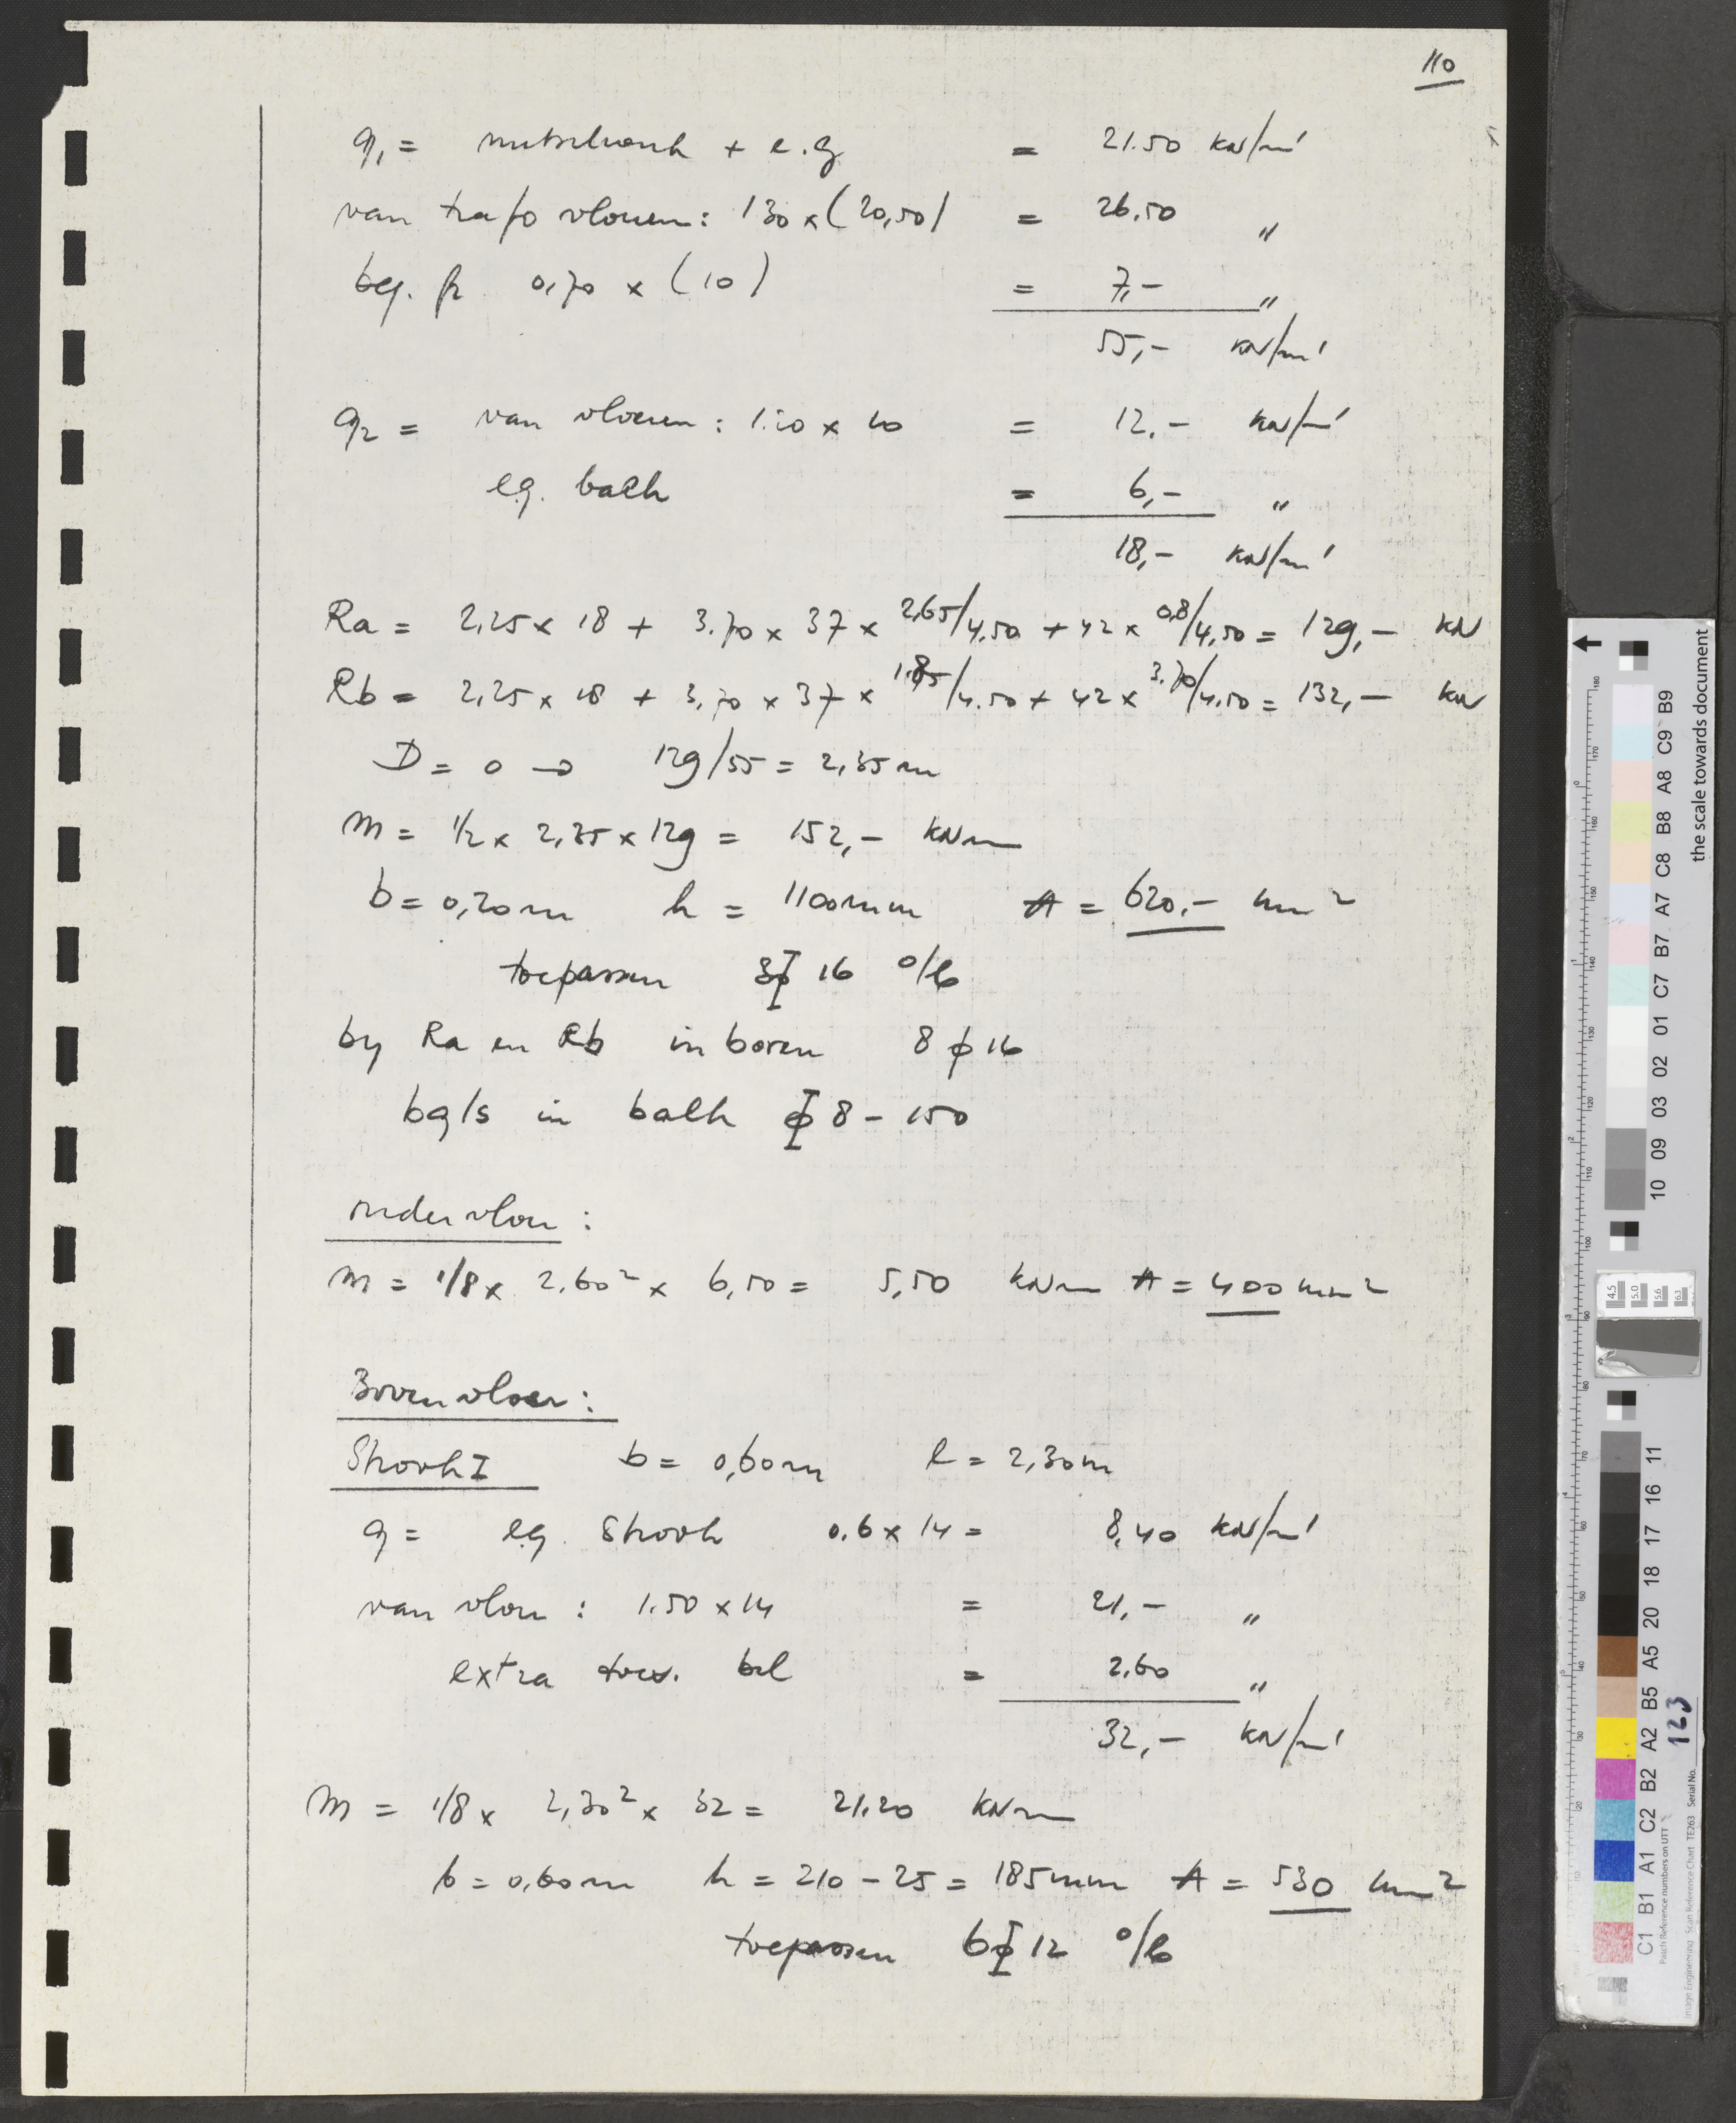 110
q1 = nutschank + e.g = 21.50 kN/m'
van trafo vloeren: 130 x (20,50) = 26,50 "
beg. gr 0,70 x (10) = 7,- "
55,- kN/m'
q2 = van vloeren: 1.20 x 10 = 12,- kN/m'
e.g. balk = 6,- "
18,- kN/m'
Ra = 2,25 x 18 + 3.70 x 37 x 2,65/4,50 + 42 x 0,8/4,50 = 129,- kN
Rb = 2,25 x 18 + 3,70 x 37 x 1,85/4.50 + 42 x 3.70/4,50 = 132,- kN
D = 0 → 129/55 = 2,35 m
M = 1/2 x 2,35 x 129 = 152,- kNm
b = 0,20 m h = 1100 mm A = 620,- mm²
toepassen 3ϕ 16 o/b
by Ra en Rb in boven 8 ϕ 16
bgls in balk ϕ 8 - 150
ondervloer:
M = 1/8 x 2,60² x 6,50 = 5,50 kNm A = 400 mm²
Bovenvloer:
Strook I b = 0,60 m l = 2,30 m
q = e.g. Strook 0.6 x 14 = 8,40 kN/m'
van vloer: 1.50 x 14 = 21,- "
extra toev. bel = 2,60 "
32,- kN/m'
M = 1/8 x 2,30² x 32 = 21,20 kNm
b = 0,60 m h = 210 - 25 = 185 mm A = 530 mm²
toepassen 6ϕ 12 o/b
the scale towards document
C1 B1 A1 C2 B2 A2 B5 A5 20 18 17 16 11
10 09 03 02 01 C7 B7 A7 C8 B8 A8 C9 B9
Patch Reference numbers on UTT
Image Engineering Scan Reference Chart TE263 Serial No. 123